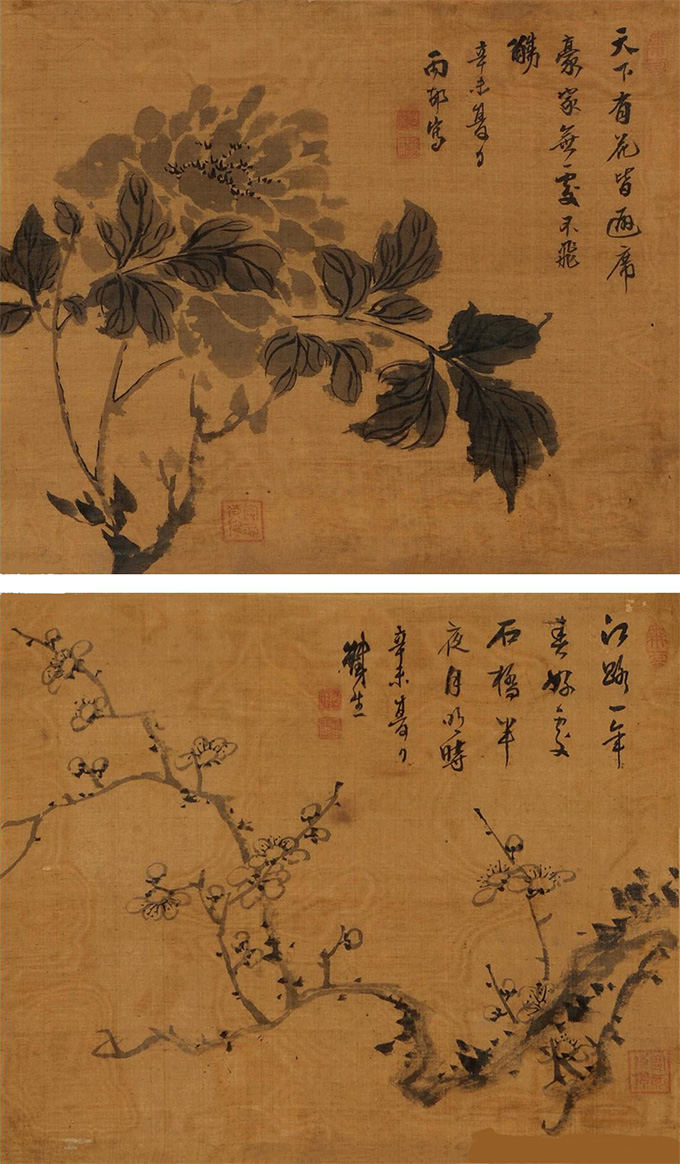 天下有花皆避席
豪家無一處不飛
觴
辛未夏
寫
江路一年
春好處
石橋半
夜月明時
辛未夏
生